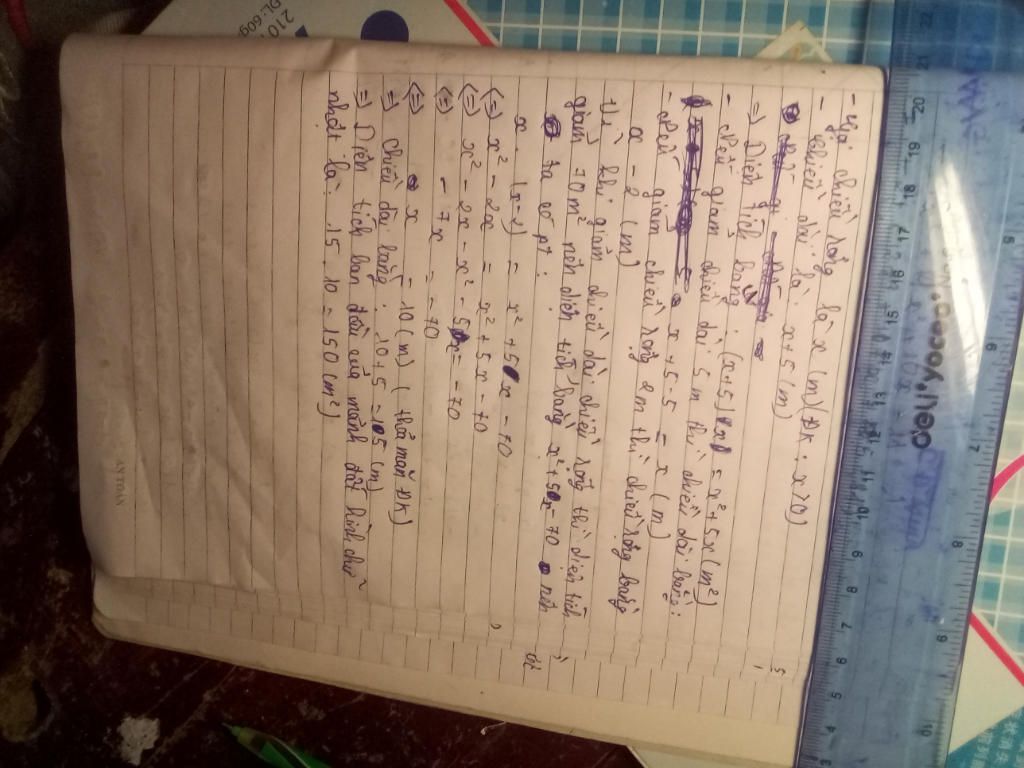 - Gọi chiều rộng là x (m) (ĐK: x>0)
- chiều dài là: x+5 (m)
=) Diện tích bằng: (x+5).x = x²+5x (m²)
- Nếu giảm chiều dài 5m thì chiều dài bằng:
x+5-5 = x (m)
- Nếu giảm chiều rộng 2m thì chiều rộng bằng
x - 2 (m)
Vì khi giảm chiều dài, chiều rộng thì diện tích
giảm 70m² nên diện tích bằng x²+5x-70 nên
ta có pt:
x (x-2) = x²+5x-70
(=) x²-2x = x²+5x-70
(=) x²-2x-x²-5x = -70
(=) -7x = -70
(=) x = 10 (m) (thỏa mãn ĐK)
=) Chiều dài bằng: 10+5=15 (m)
=) Diện tích ban đầu của mảnh đất hình chữ
nhật là: 15.10=150 (m²)
deli
yocee
210
DL-609